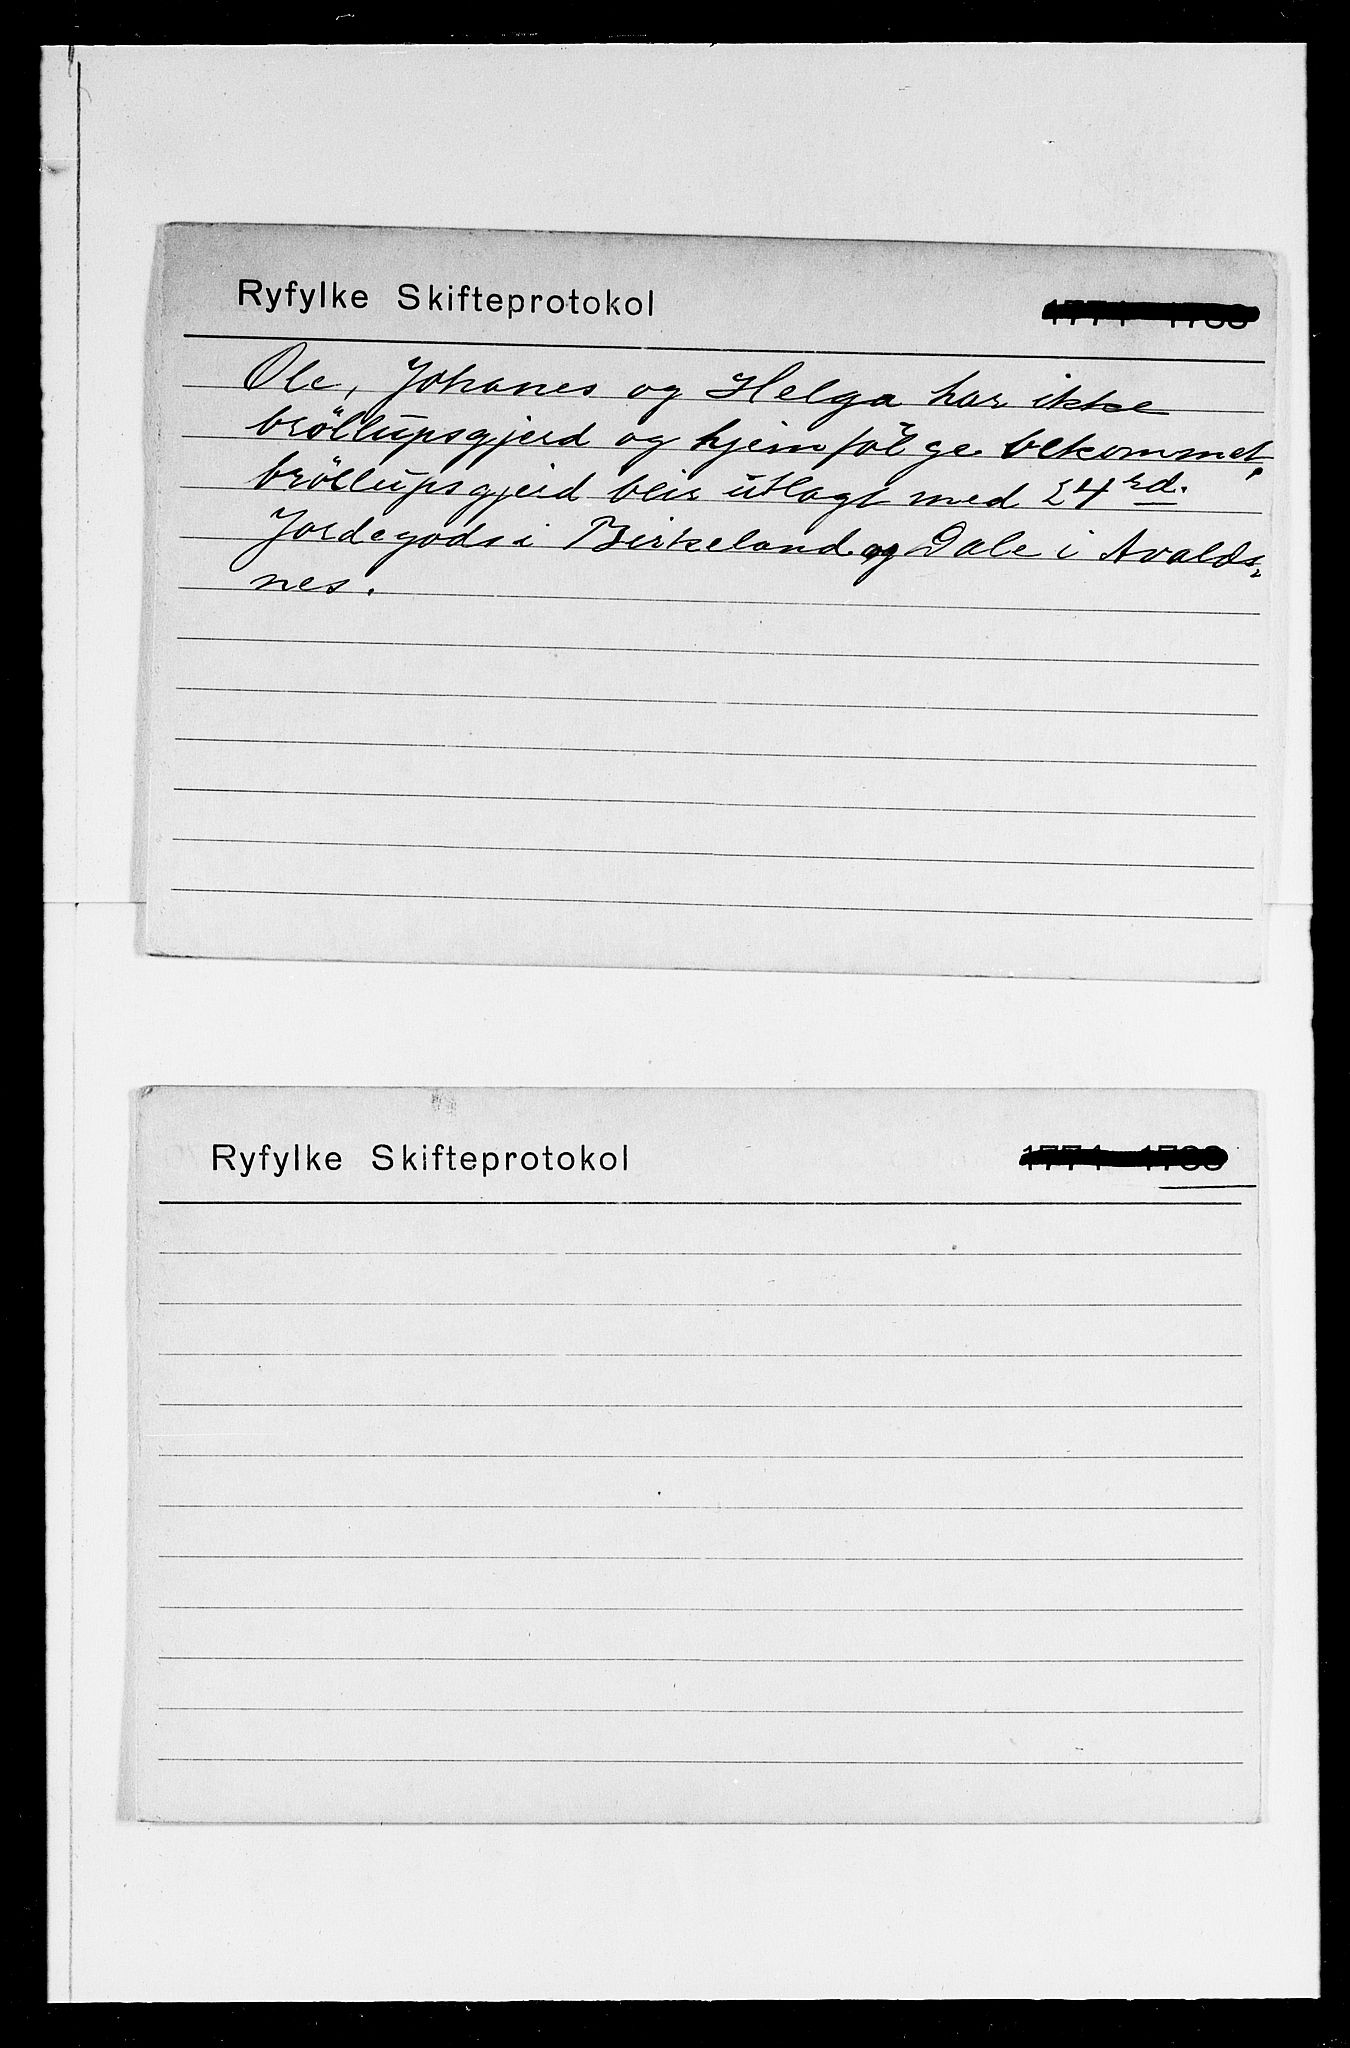 Ryfylke Skifteprotokol
Ole, Johanes og Helga har ikke
bröllupsgjerd og hjemfölge bekommet,
bröllupsgjerd blir utlagt med 24 rd.
Jordegods i Birkeland og Dale i Avalds-
nes.
Ryfylke Skifteprotokol